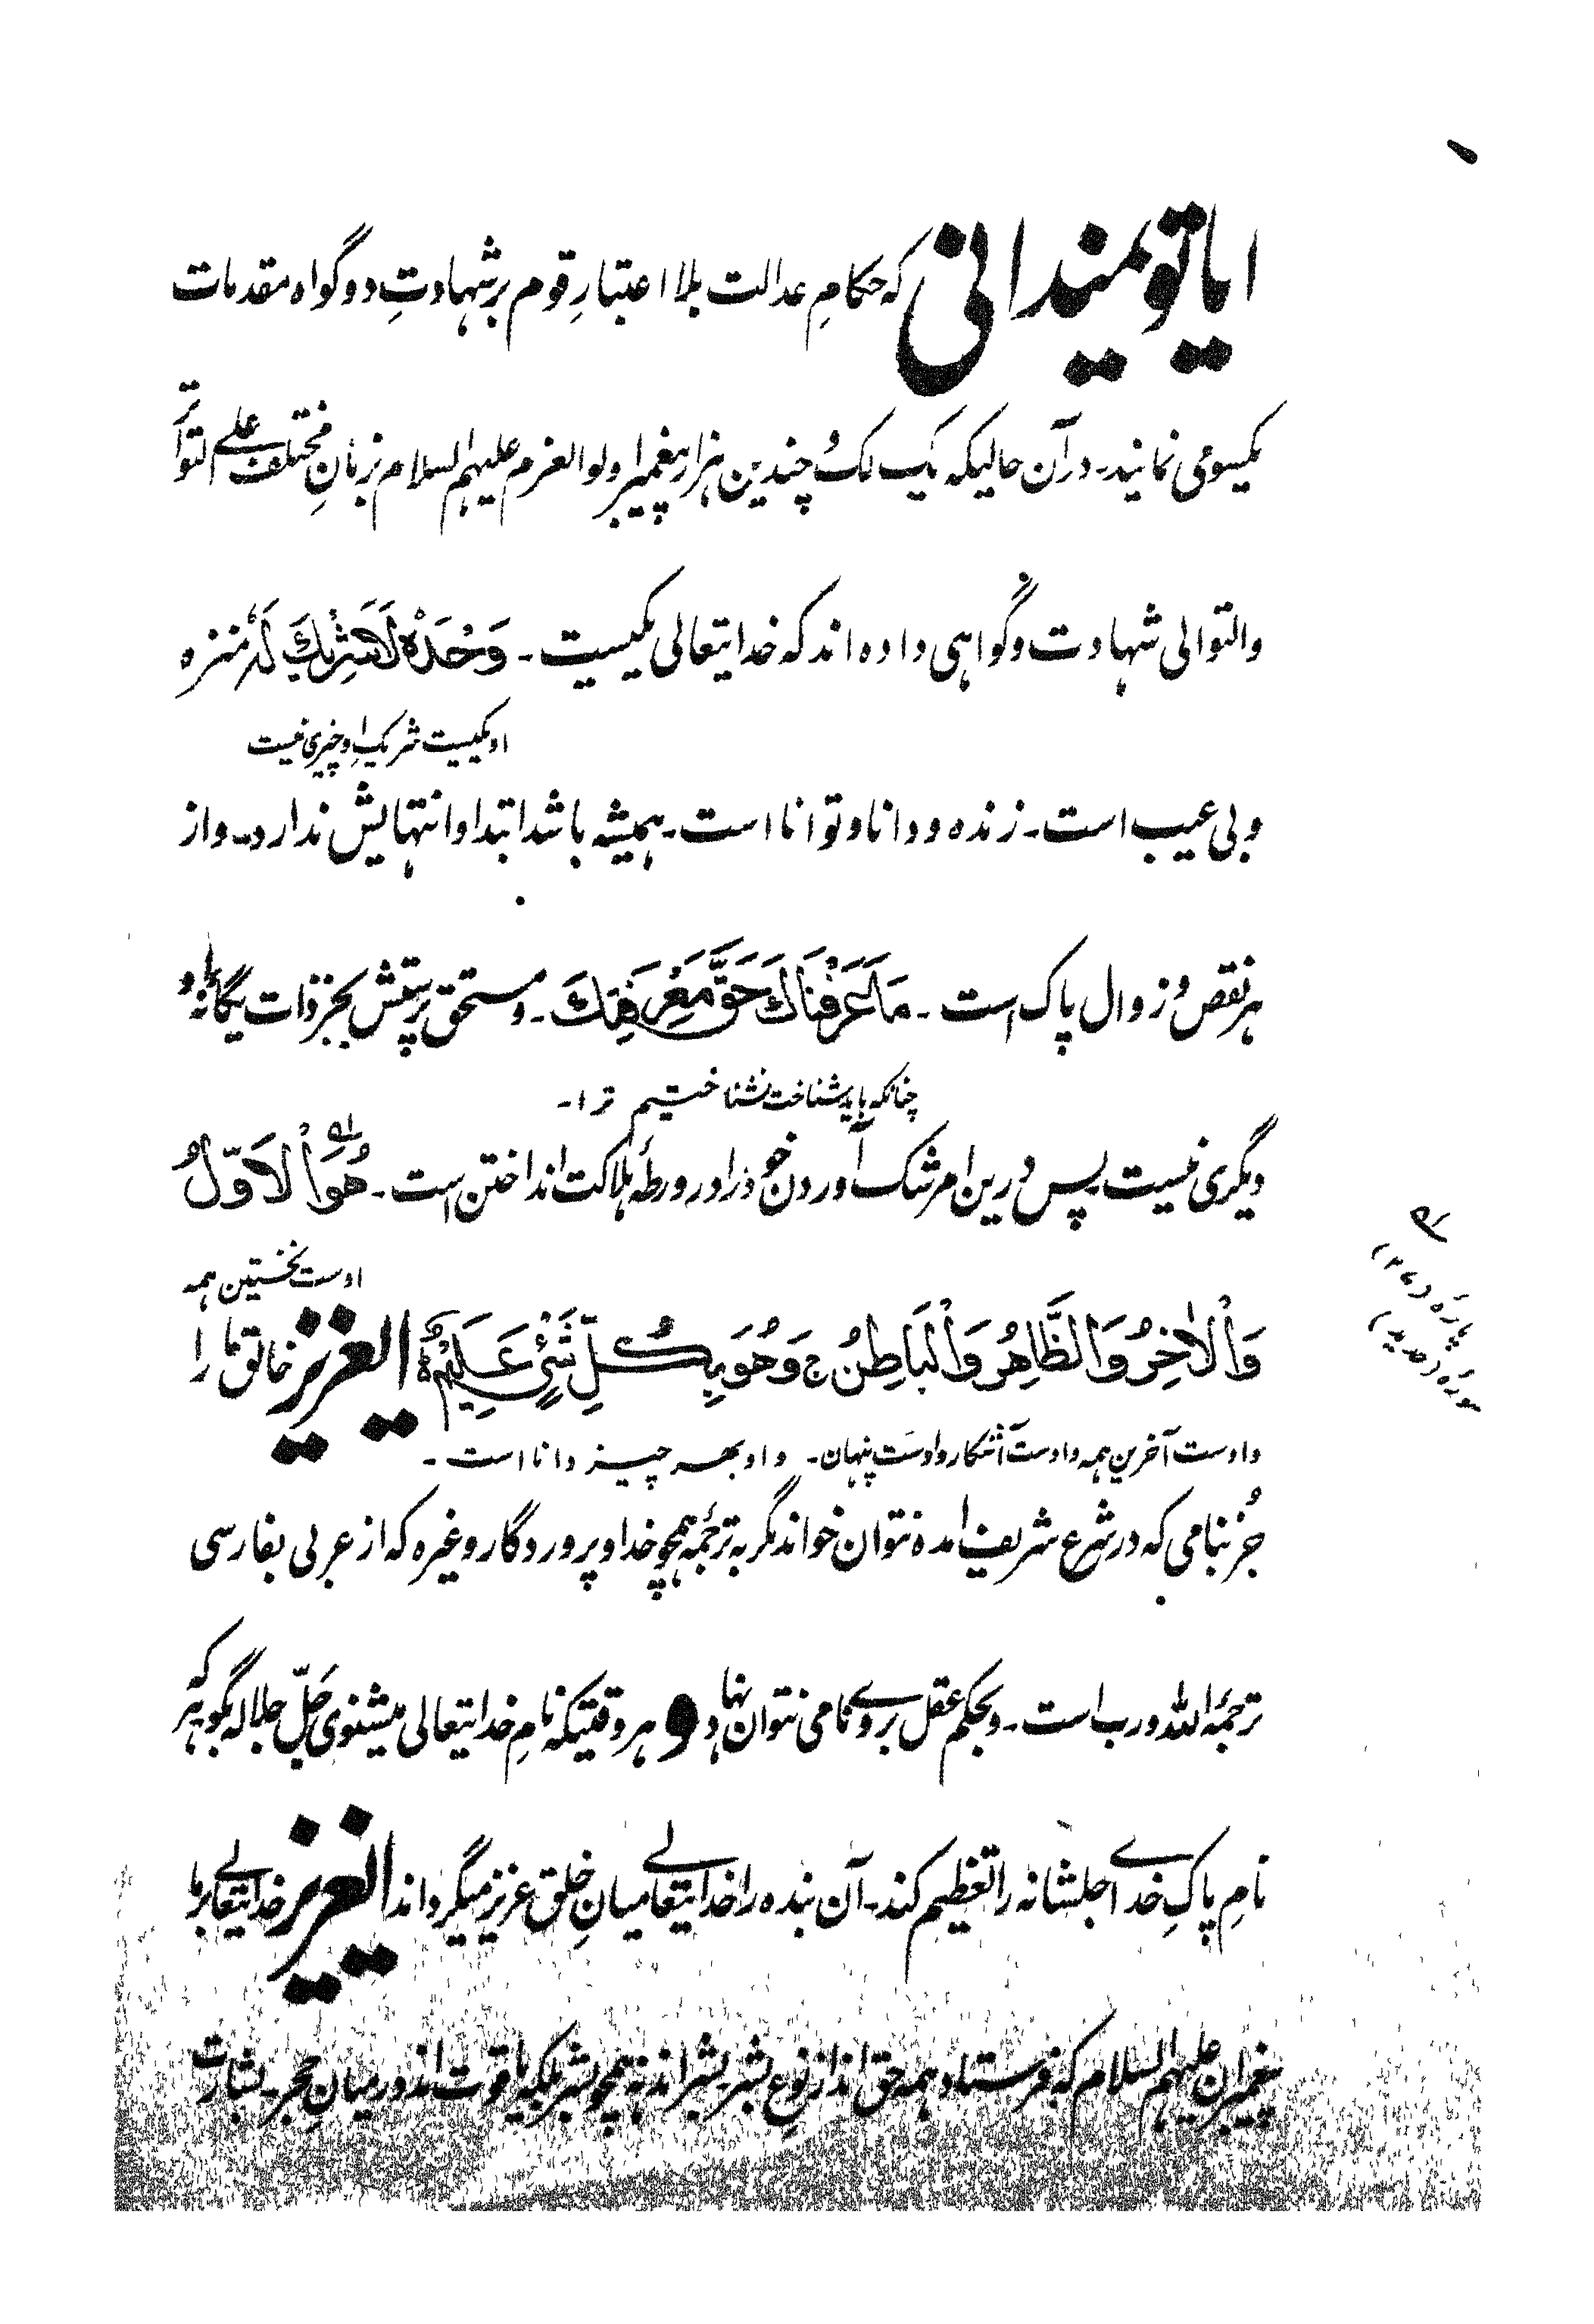 ایا تو میدانی که حکامِ عدالت بلا اعتبارِ قوم بر شهادتِ دو گواه مقدمات
یکسو می نمایند۔ در آن حالیکه یک لکُ چندین هزار پیغمبر اولوالعزم علیهم السلام زمانِ مختلف علے التواتر
والتوالی شهادت و گواهی داده اند که خدایتعالی یکیست۔ وَحْدَهٗ لَاشَرِیْكَ لَهٗ منزه
او یکیست شریکِ او چیزی نیست
و بی عیب است۔ زنده و دانا و توانا است۔ همیشه باشد ابتدا و انتهایش ندارد۔ و از
هر نقص و زوال پاک است۔ مَا عَرَفْنَاكَ حَقَّ مَعْرِفَتِكَ۔ و مستحق پرستش بجز ذات یگانهٔ او
چنانکه باید شناخت نشناختیم ترا۔
دیگری نیست پس درین امر شک آوردن خود را در ورطهٔ هلاکت انداختن است۔ هُوَ الْاَوَّلُ
اوست نخستین همه
وَالْاٰخِرُ وَالظَّاهِرُ وَالْبَاطِنُ ج وَهُوَ بِكُلِّ شَیْءٍ عَلِیْمٌ العزیز خالق ما را
و اوست آخرین همه و اوست آشکار و اوست پنهان۔ و او بهر چیز دانا است۔
پاره
سوره (حدید)
جُز بنامی که در شرع شریف امده نتوان خواند مگر به ترجمهٔ همچو خدا و پروردگار و غیره که از عربی بفارسی
ترجمهٔ الله و رب است۔ و بحکم عقل بروے نامی نتوان نهاد و هر وقتیکه نامِ خدایتعالی میشنوی جَلّ جلاله بگو هر که
نامِ پاکِ خداے جلشانه را تعظیم کند۔ آن بنده را خدایتعالے میانِ خلق عزیز میگرداند العزیز خدایتعالے بر ما
پیغمبران علیهم السلام که فرستاد همه حق اند از نوعِ بشر بشر اند نه همچو بشر بلکه یاقوت اند در میانِ حجر۔ بشارت